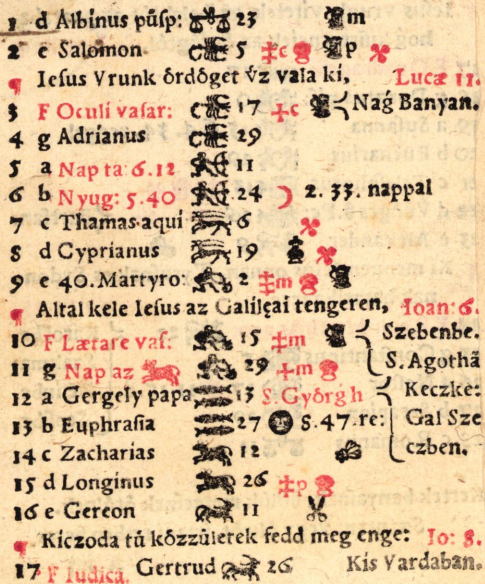 1 d Albinus půsp: 23 m
2 e Salomon 5 ‡c p
¶ Iesus Vrunk ôrdôget v́z vala ki, Lucæ 11.
3 F Oculi vasar: 17 ‡c Nag̀ Banyan.
4 g Adrianus 29
5 a Nap ta: 6.12 11
6 b Nyug: 5.40 24 ☽ 2. 33. nappal
7 c Thamas aqui 6
8 d Cyprianus 19
9 e 40. Martyro: 2 ‡m
¶ Altal kele Iesus az Galilęai tengeren, Ioan: 6.
10 F Lætare vas: 15 ‡m Szebenbe.
11 g Nap az 29 ‡m S. Agothā
12 a Gergely papa 13 S. Gyôrgh Keczke:
13 b Euphrasia 27 8.47.re: Gal Sze
14 c Zacharias 12 czben.
15 d Longinus 26 ‡p
16 e Gereon 11
¶ Kiczoda tů kôzzůletek fedd meg enge: Io: 8.
17 F Iudica. Gertrud 26 Kis Vardaban.